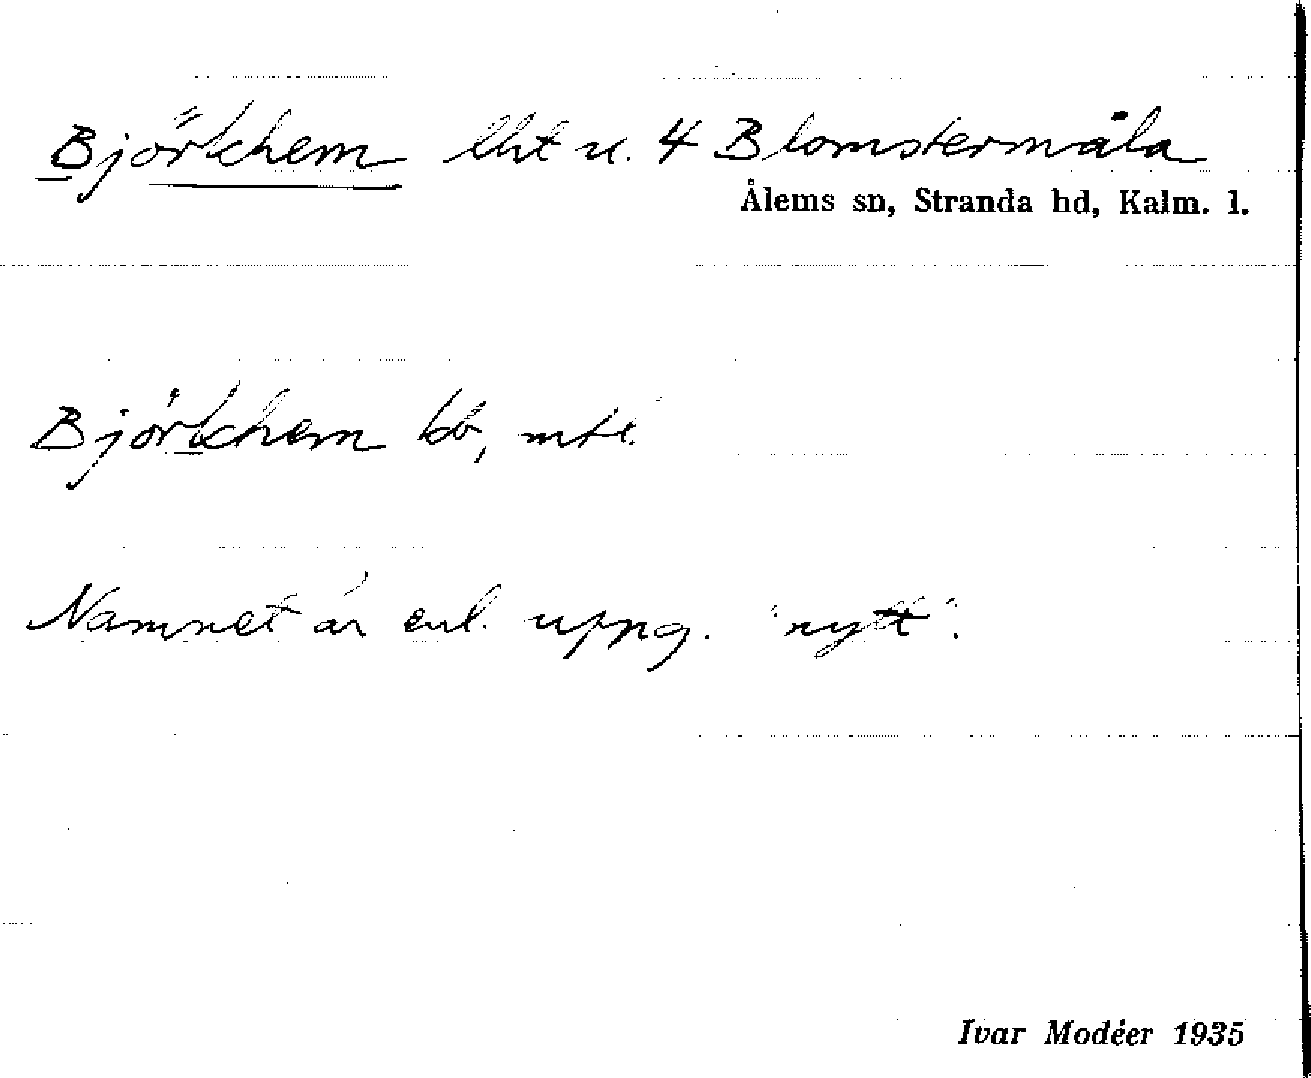 Björkhem lht u. 4 Blomstermåla
Ålems sn, Stranda hd, Kalm. l.
Björkhem kb,
Namnet är enl. uppg. "nytt".
Ivar Modéer 1935